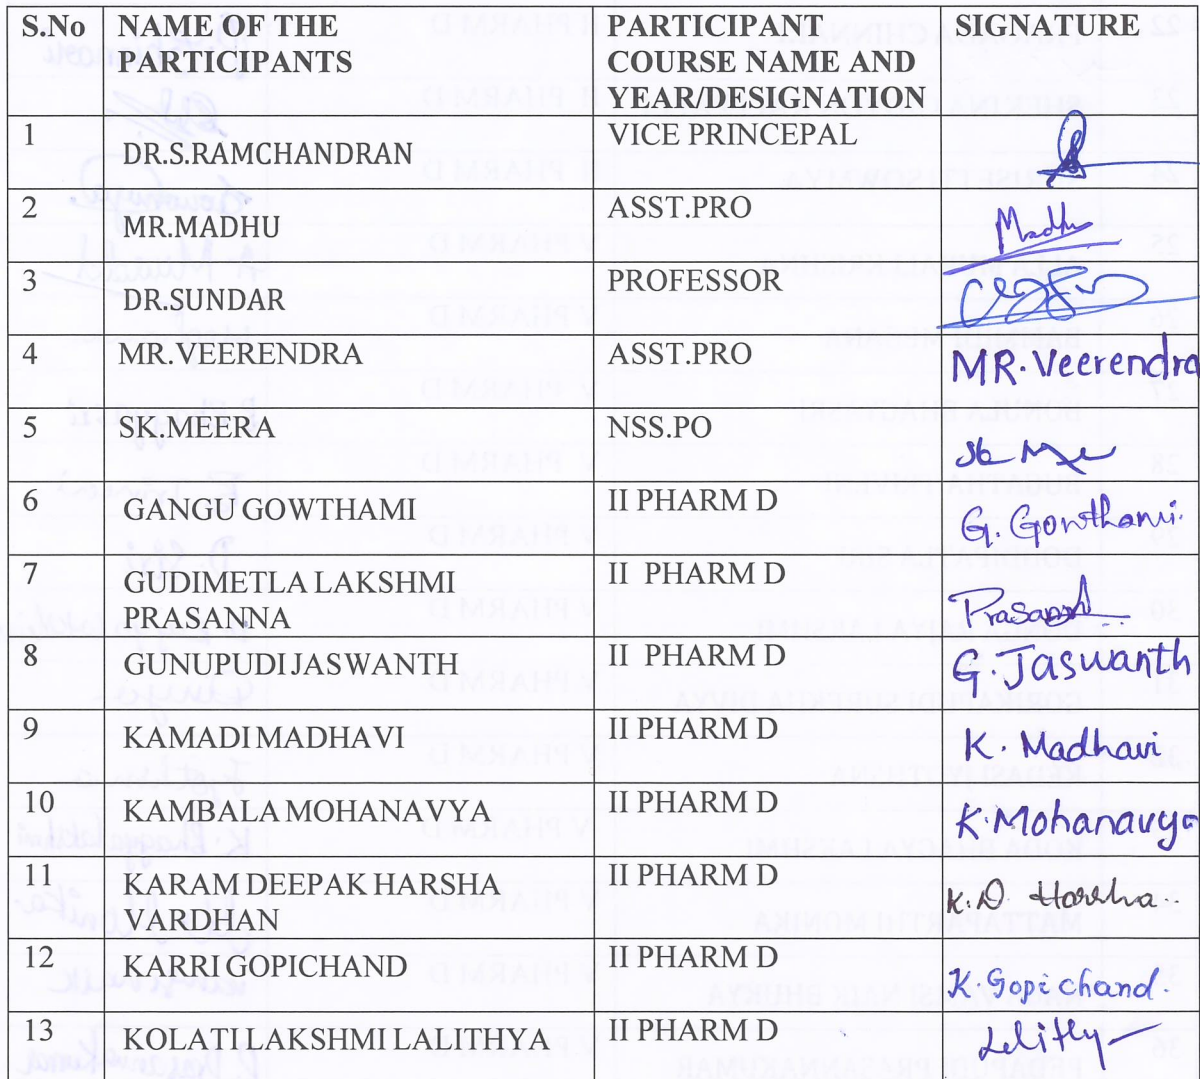 S.No NAME OF THE PARTICIPANTS PARTICIPANT COURSE NAME AND YEAR/DESIGNATION SIGNATURE
1 DR.S.RAMCHANDRAN VICE PRINCEPAL
2 MR.MADHU ASST.PRO Madhu
3 DR.SUNDAR PROFESSOR
4 MR.VEERENDRA ASST.PRO MR.Veerendra
5 SK.MEERA NSS.PO
6 GANGU GOWTHAMI II PHARM D G. Gowthami.
7 GUDIMETLA LAKSHMI PRASANNA II PHARM D
8 GUNUPUDI JASWANTH II PHARM D G. Jaswanth
9 KAMADI MADHAVI II PHARM D K. Madhavi
10 KAMBALA MOHANAVYA II PHARM D K.Mohanavya
11 KARAM DEEPAK HARSHA VARDHAN II PHARM D K.D. Harsha..
12 KARRI GOPICHAND II PHARM D K.Gopichand.
13 KOLATI LAKSHMI LALITHYA II PHARM D